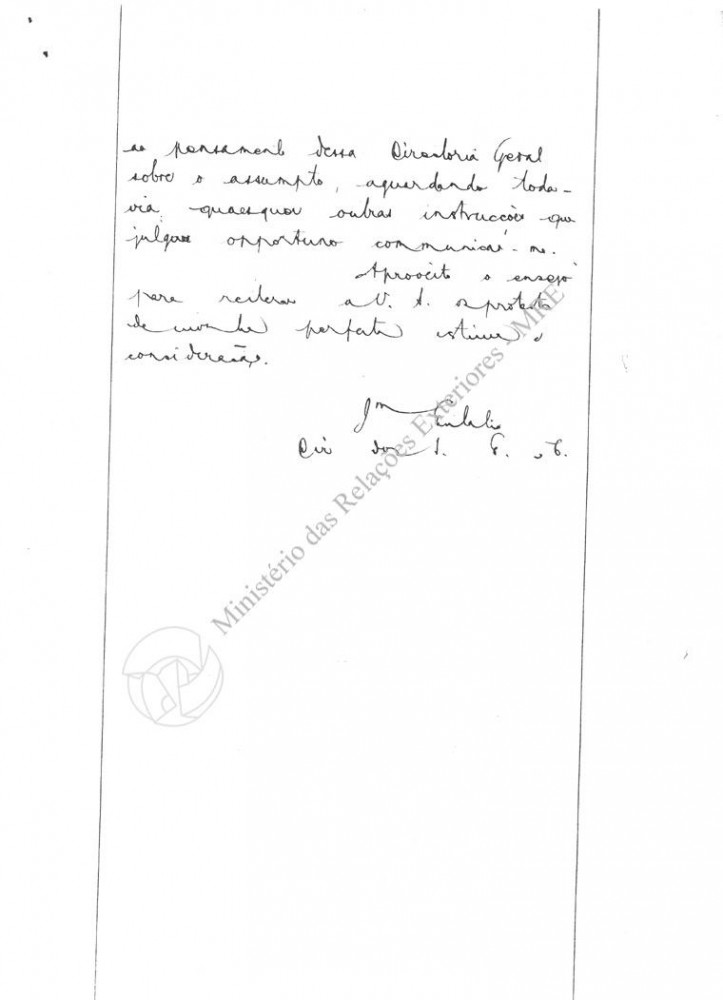 ao pensamento dessa Directoria Geral
sobre o assumpto, aguardando toda-
via, quaesquer outras instrucções que
julgar opportuno communicar-me.
Aproveito o ensejo
para reiterar a V. S. os protestos
de minha perfeita estima e
consideração.
Jm Eulalio
Dir dos S. E. e C.
Ministério das Relações Exteriores - MRE